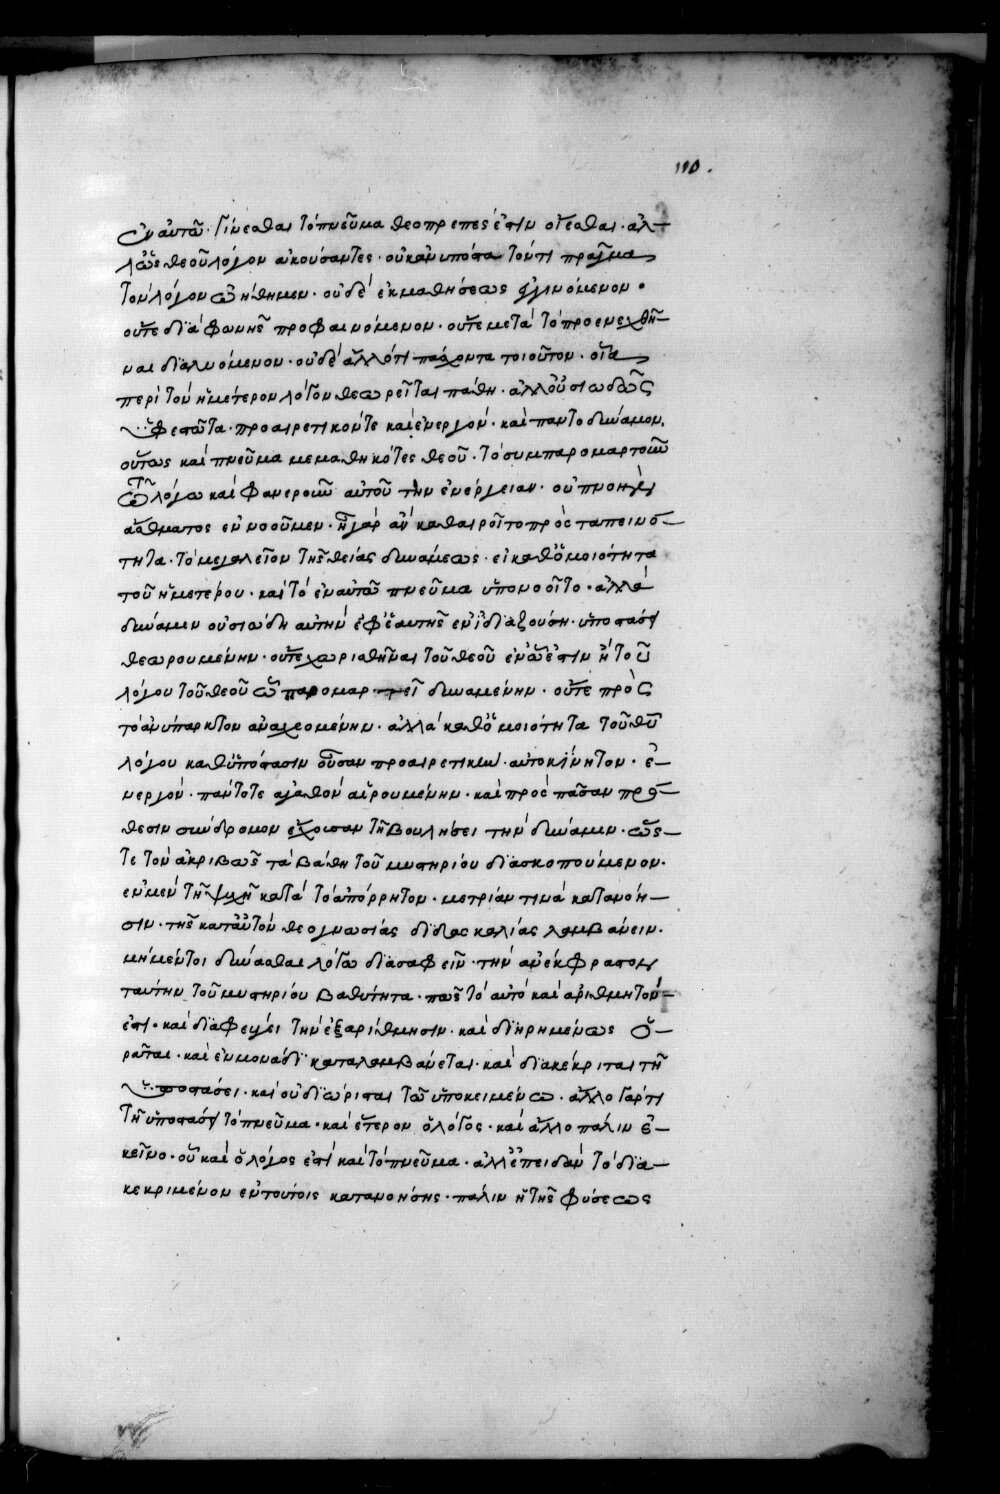 110.
ἐν αὐτῶ· γίνεσθαι τὸ πνεῦμα θεοπρεπές ἐστιν οἴεσθαι· ἀλ-
λ' ὡς θεοῦ λόγον ἀκούσαντες· οὐκ ἀνυπόστατόν τι πρᾶγμα
τὸν λόγον ὠήθημεν· οὐδὲ ἐκ μαθήσεως ἐγγινόμενον·
οὔτε διὰ φωνῆς προφαινόμενον· οὔτε μετὰ τὸ προενεχθῆ-
ναι διαλυόμενον· οὐδὲ ἄλλό τι πάσχοντα τοιοῦτον· οἷα
περὶ τὸν ἡμέτερον λόγον θεωρεῖται πάθη· ἀλλ' οὐσιωδῶς
ὑφεστῶτα· προαιρετικόν τε καὶ ἐνεργόν· καὶ παντοδύναμον.
οὕτως καὶ πνεῦμα μεμαθηκότες θεοῦ· τὸ συμπαρομαρτοῦν
τῶ λόγω καὶ φανεροῦν αὐτοῦ τὴν ἐνέργειαν· οὐ πνοὴν
ἄσθματος ἐννοοῦμεν· ἦ γὰρ ἂν καθαιροῖτο πρὸς ταπεινό-
τητα· τὸ μεγαλεῖον τῆς θείας δυνάμεως· εἰ καθ' ὁμοιότητα
τοῦ ἡμετέρου· καὶ τὸ ἐν αὐτῶ πνεῦμα ὑπονοοῖτο· ἀλλὰ
δύναμιν οὐσιώδη αὐτὴν ἐφ' ἑαυτῆς ἐν ἰδιαζούση· ὑποστάσει
θεωρουμένην· οὔτε χωρισθῆναι τοῦ θεοῦ ἐν ᾧ ἐστιν ἢ τοῦ
λόγου τοῦ θεοῦ ᾧ παρομαρτεῖ δυναμένην· οὔτε πρὸς
τὸ ἀνύπαρκτον ἀναχεομένην· ἀλλὰ καθ' ὁμοιότητα τοῦ θῦ
λόγου καθ' ὑπόστασιν οὖσαν προαιρετικὴν· αὐτοκίνητον· ἐ-
νεργόν· πάντοτε ἀγαθὸν αἱρουμένην· καὶ πρὸς πᾶσαν πρό-
θεσιν σύνδρομον ἔχουσαν τῆ βουλήσει τὴν δύναμιν· ὥς-
τε τὸν ἀκριβῶς τὰ βάθη τοῦ μυστηρίου διασκοπούμενον·
ἐν μὲν τῆ ψυχῆ κατὰ τὸ ἀπόρρητον· μετρίαν τινὰ κατανόη-
σιν· τῆς κατ' αὐτὸν θεογνωσίας διδασκαλίας λαμβάνειν·
μὴ μέντοι δύνασθαι λόγω διασαφεῖν· τὴν ἀνέκφραστον
ταύτην τοῦ μυστηρίου βαθύτητα· πῶς τὸ αὐτὸ καὶ ἀριθμητὸν-
ἐστὶ· καὶ διαφεύγει τὴν ἐξαρίθμησιν· καὶ διηρημένως ὁ-
ρᾶται· καὶ ἐν μονάδι καταλαμβάνεται· καὶ διακέκριται τῆ
ὑποστάσει· καὶ οὐ διώρισται τῶ ὑποκειμένω· ἄλλο γάρ τι
τῆ ὑποστάσει τὸ πνεῦμα· καὶ ἕτερον ὁ λόγος· καὶ ἄλλο πάλιν ἐ-
κεῖνο· οὗ καὶ ὁ λόγος ἐστὶ καὶ τὸ πνεῦμα· ἀλλ' ἐπειδὰν τὸ δια-
κεκριμένον ἐν τούτοις κατανοήσης· πάλιν ἡ τῆς φύσεως